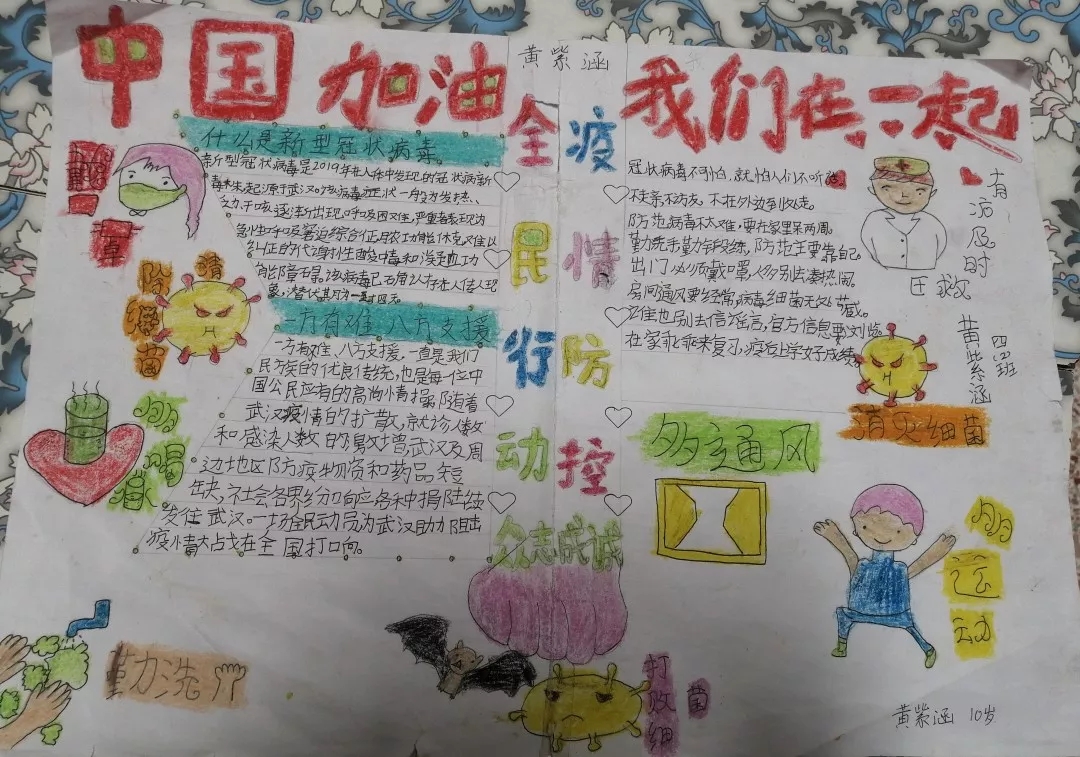 中国加油
黄紫涵
我们在一起
全民行动
疫情防控
什么是新型冠状病毒
新型冠状病毒是2019年在人体中发现的冠状病新
毒株,起源于武汉。该病毒症状一般为发热、
乏力、干咳、逐渐出现呼吸困难,严重者表现为
急性呼吸窘迫综合征
纠正的代谢性酸中毒和
一方有难 八方支援
一方有难、八方支援,一直是我们
民族的优良传统,也是每一位中
国公民应有的高尚情操。随着
武汉疫情的扩散,就诊人数
和感染人数的易增武汉及周
边地区防疫物资和药品短
缺,社会各界纷纷响应各种捐陆续
发往武汉。一场全民动员为武汉助力阻击
疫情大占戈在全国打口向。
冠状病毒不可怕,就怕人们不听话。
不走亲不访友,不在外边到处走。
防范病毒不太难,要在家里呆两周。
勤洗手勤锻练,防范主要靠自己。
出门必须戴口罩,人多别去凑热闹。
房间通风要经常,病毒细菌无处藏。
在家乖乖来复习,疫后上学好成绩。
有病及时
医救
黄紫涵
四四班
防细菌
多喝
多通风
消灭细菌
众志成诚
多
运
动
勤洗
打败细
菌
黄紫涵 10岁